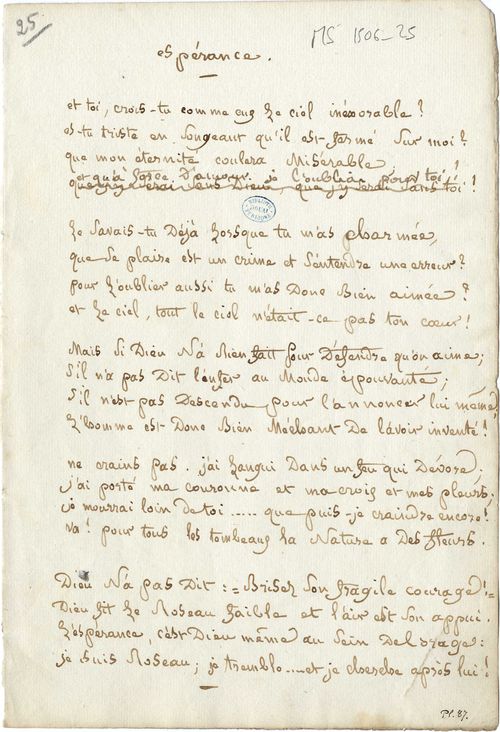 25
MS 1506-25
espérance.
et toi, crois-tu comme eux le ciel inéxorable ?
es-tu triste en songeant qu'il est fermé sur moi ?
que mon éternité coulera Misérable,
et qu'à force D'amour je l'oubliai pour toi !
que j'y serai sans toi !
BIBLIOTH. DOUAI
le savais-tu Déjà lorsque tu m'as charmée,
que se plaire est un crime et s'entendre une erreur ?
pour l'oublier aussi tu m'as Donc Bien aimée ?
et le ciel, tout le ciel n'était-ce pas ton cœur !
Mais si Dieu N'a Rien fait pour Défendre qu'on aime ;
S'il n'a pas Dit l'enfer au Monde épouvanté ;
S'il n'est pas Descendu pour l'annoncer lui même,
L'homme est Donc Bien Méchant De l'avoir inventé !
ne crains pas. j'ai langui Dans un feu qui Dévore ;
j'ai porté ma couronne et ma croix et mes pleurs ;
je mourrai loin de toi ...... que puis-je craindre encore !
va ! pour tous les tombeaux la Nature a Des fleurs.
Dieu N'a pas Dit : = Brisez son fragile courage ! =
Dieu fit le Roseau faible et l'air est son appui.
L'espérance, c'est Dieu même au Sein De l'orage :
je suis Roseau ; je tremble .... et je cherche après lui !
Pl. 87.